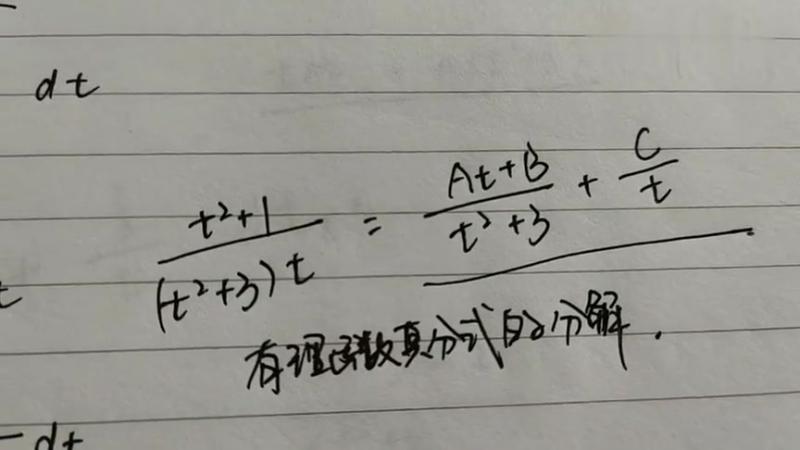 dt
\frac{t^2+1}{(t^2+3)t} = \frac{At+B}{t^2+3} + \frac{C}{t}
有理函数真分式的分解.
dt